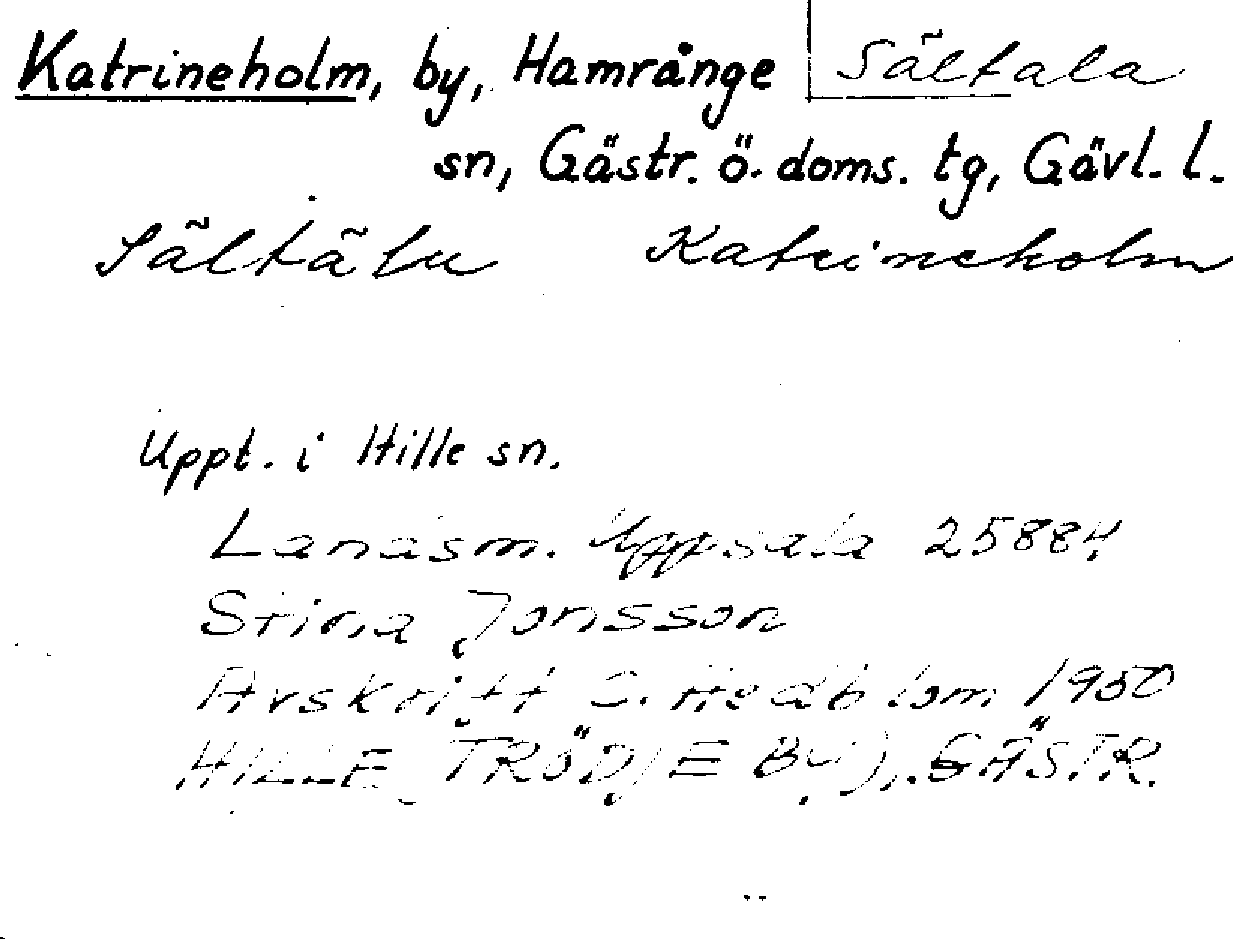 Katrineholm, by, Hamrånge Sältala
sn, Gästr. ö. doms. tg, Gävl. l.
Sältälu Katrineholm
Uppt. i Hille sn.
Landsm. Uppsala 25884
Stina Jonsson
Avskrift G. Hedblom 1950
HILLE (TRÖDJE BY), GÄSTR.